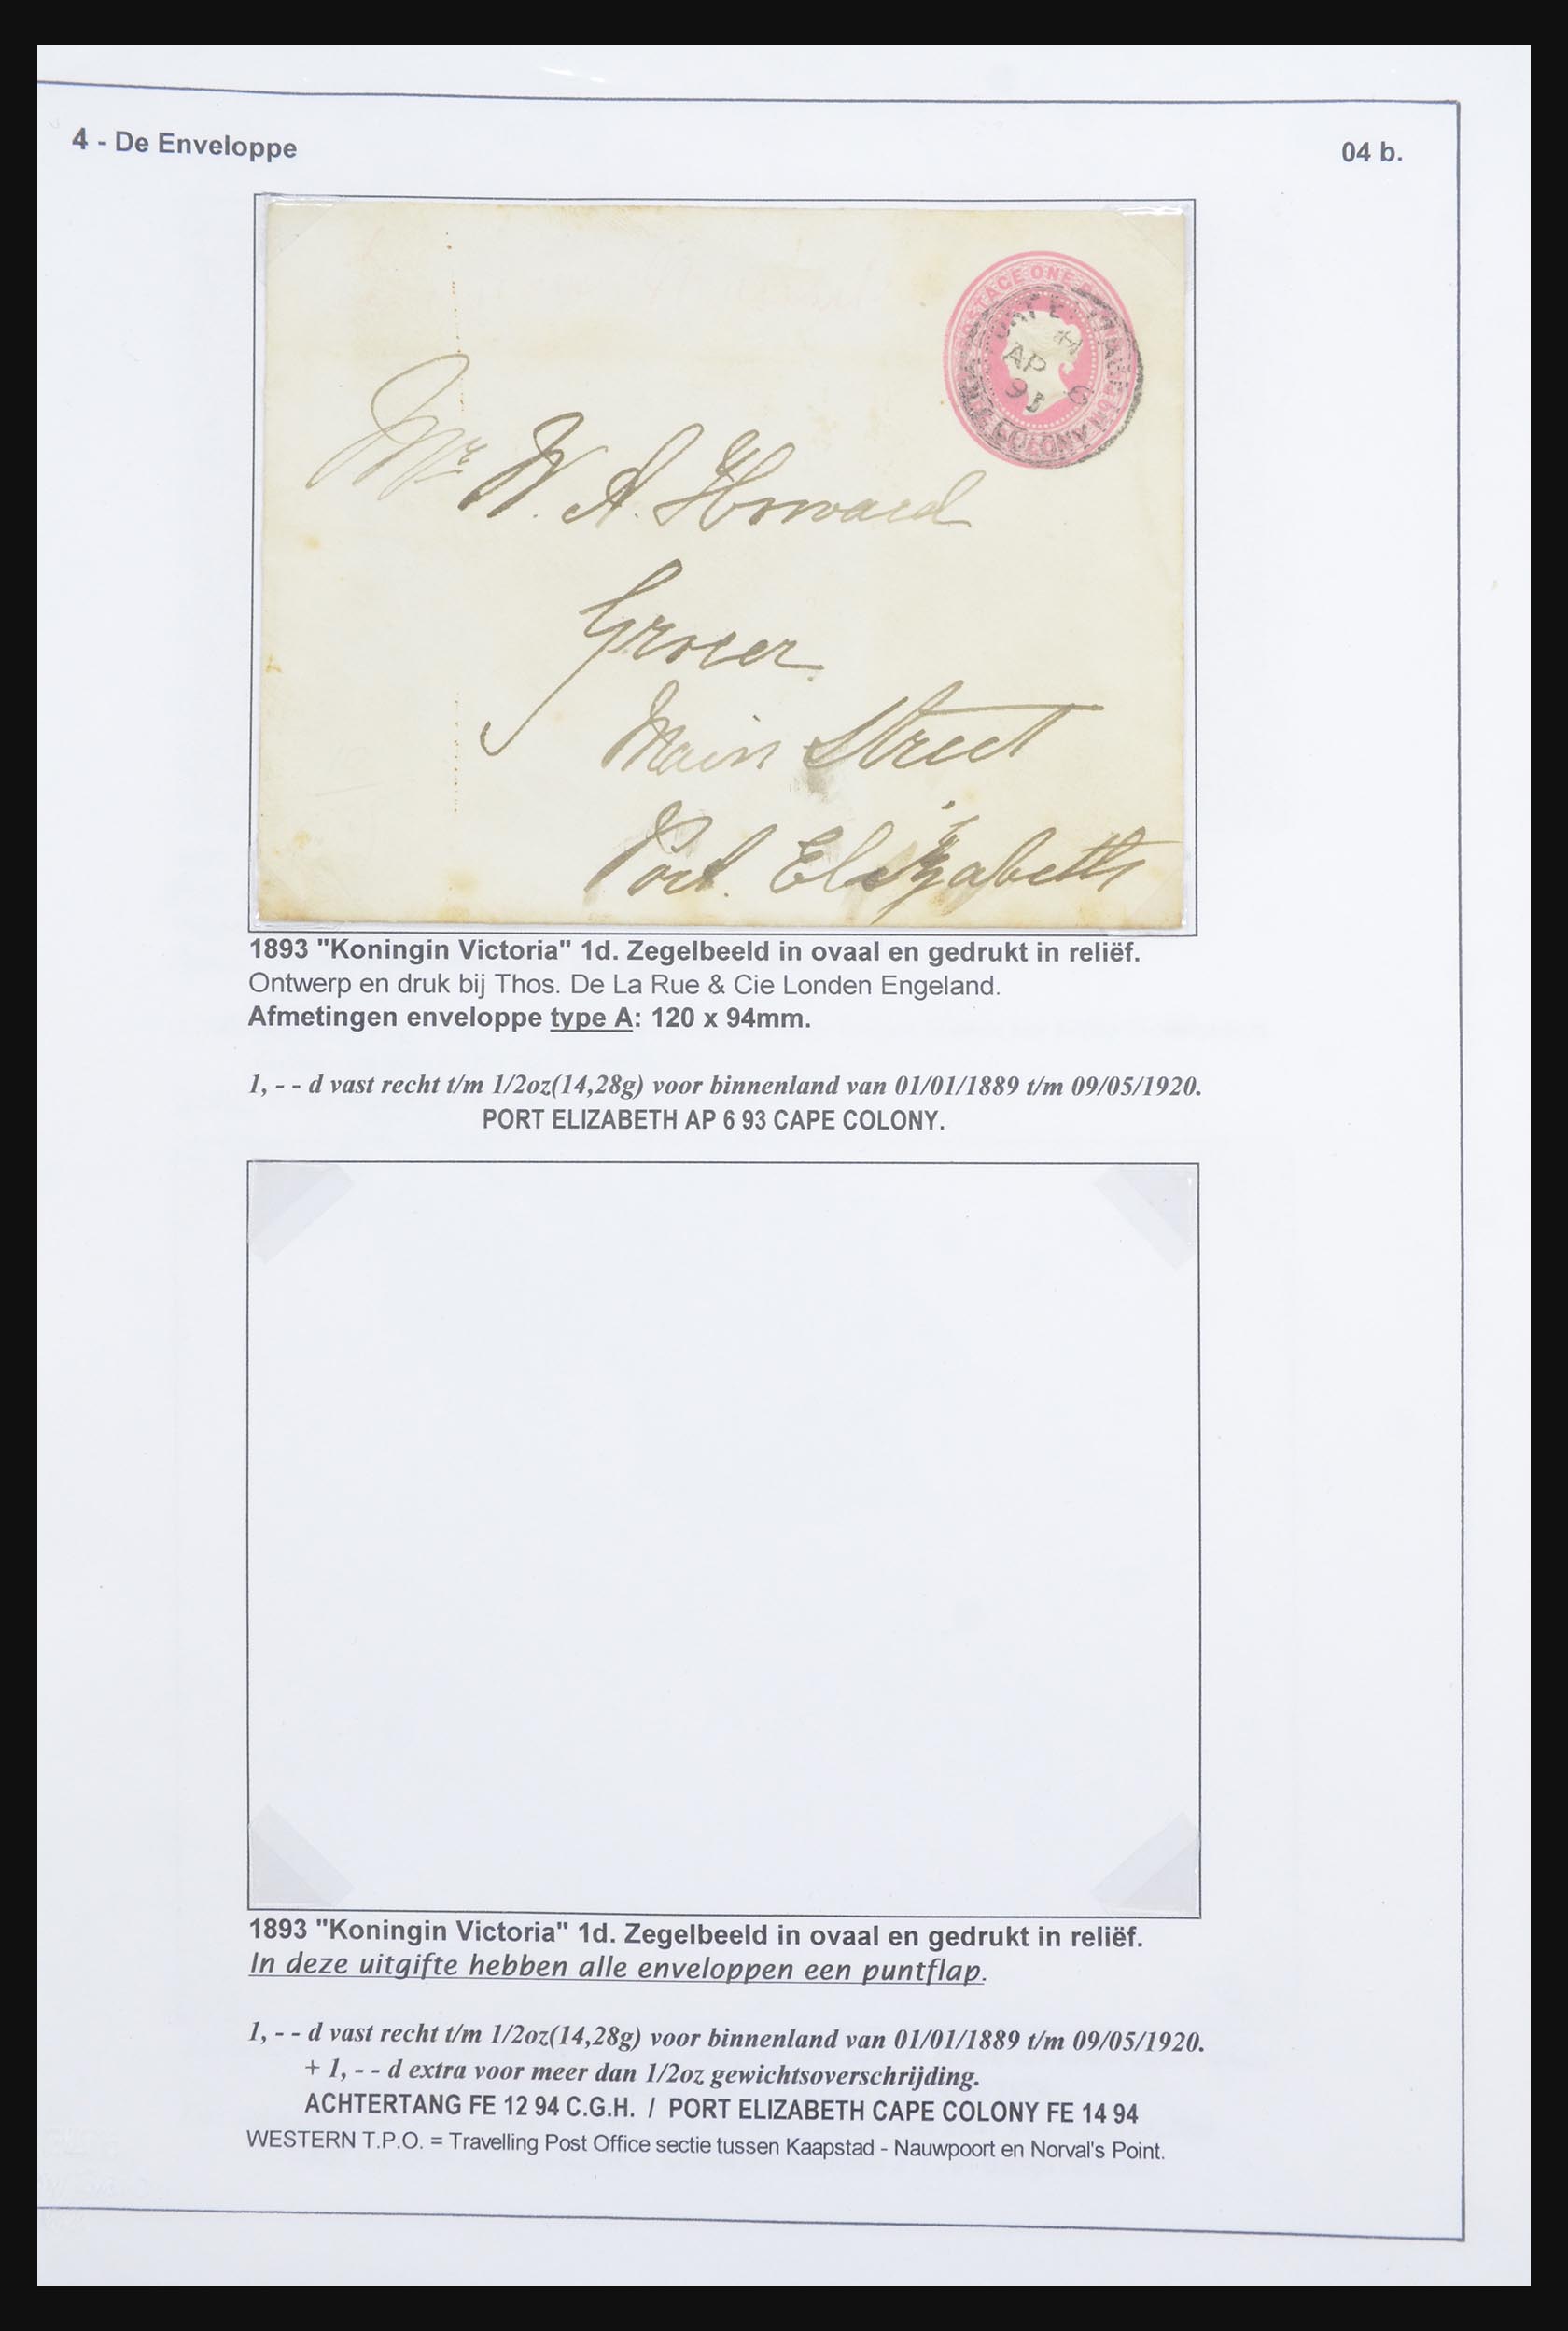 4 - De Enveloppe
04 b.
POSTAGE ONE
AP
93
6
COLONY
Mr W. A. Howard
Grocer
Main Street
Port Elizabeth
1893 "Koningin Victoria" 1d. Zegelbeeld in ovaal en gedrukt in reliëf.
Ontwerp en druk bij Thos. De La Rue & Cie Londen Engeland.
Afmetingen enveloppe type A: 120 x 94mm.
1, - - d vast recht t/m 1/2oz(14,28g) voor binnenland van 01/01/1889 t/m 09/05/1920.
PORT ELIZABETH AP 6 93 CAPE COLONY.
1893 "Koningin Victoria" 1d. Zegelbeeld in ovaal en gedrukt in reliëf.
In deze uitgifte hebben alle enveloppen een puntflap.
1, - - d vast recht t/m 1/2oz(14,28g) voor binnenland van 01/01/1889 t/m 09/05/1920.
+ 1, - - d extra voor meer dan 1/2oz gewichtsoverschrijding.
ACHTERTANG FE 12 94 C.G.H. / PORT ELIZABETH CAPE COLONY FE 14 94
WESTERN T.P.O. = Travelling Post Office sectie tussen Kaapstad - Nauwpoort en Norval's Point.